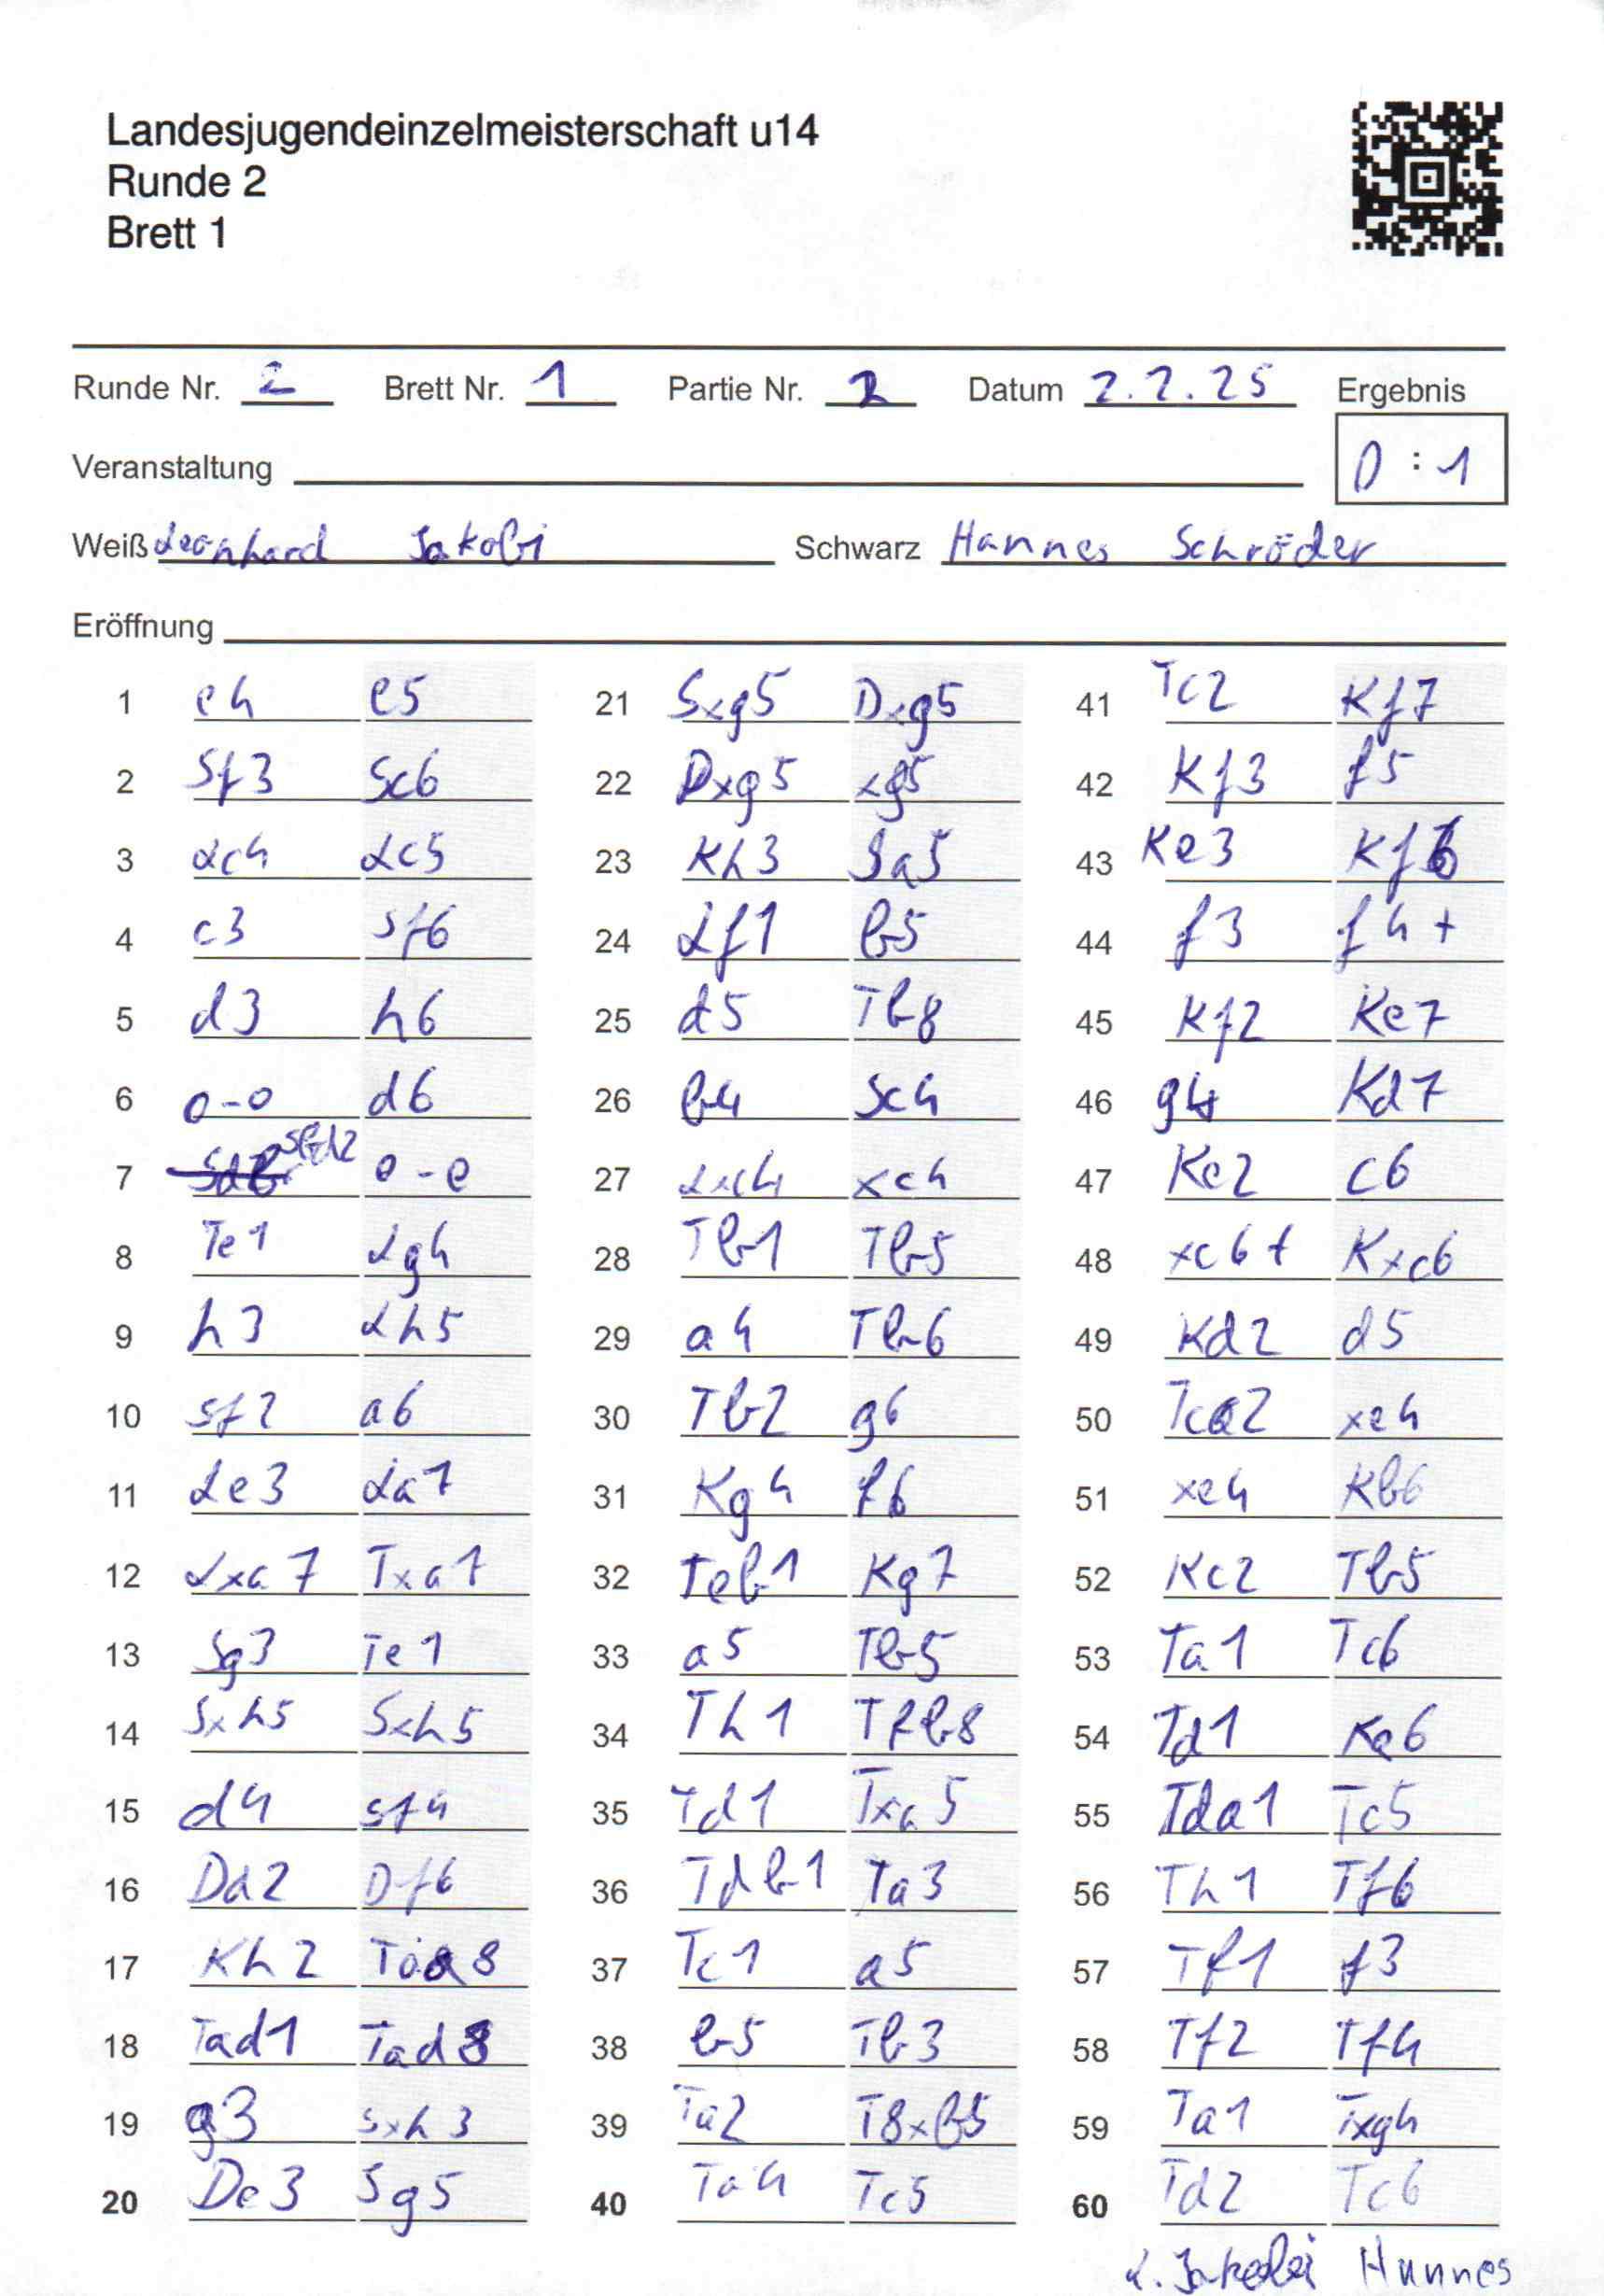 Landesjugendeinzelmeisterschaft u14
Runde 2
Brett 1
Runde Nr. 2 Brett Nr. 1 Partie Nr. 2 Datum 2.2.25 Ergebnis
Veranstaltung 0 : 1
Weiß Leonhard Jakobi Schwarz Hannes Schröder
Eröffnung
1 e4 e5 21 Sxg5 Dxg5 41 Tc2 Kf7
2 Sf3 Sc6 22 Dxg5 xg5 42 Kf3 f5
3 Lc4 Lc5 23 Kh3 Sa5 43 Ke3 Kf6
4 c3 Sf6 24 Lf1 b5 44 f3 f4+
5 d3 h6 25 d5 Tb8 45 Kf2 Ke7
6 0-0 d6 26 b4 Sc4 46 g4 Kd7
7 Sbd2 0-0 27 Lxc4 xc4 47 Ke2 c6
8 Te1 Lg4 28 Tb1 Tb5 48 xc6+ Kxc6
9 h3 Lh5 29 a4 Tb6 49 Kd2 d5
10 Sf2 a6 30 Tb2 g6 50 Tca2 xe4
11 Le3 La7 31 Kg4 f6 51 xe4 Kb6
12 Lxa7 Txa7 32 Teb1 Kg7 52 Kc2 Tb5
13 Sg3 Te1 33 a5 Tb5 53 Ta1 Tc6
14 Sxh5 Sxh5 34 Th1 Tfb8 54 Td1 Ka6
15 d4 Sf4 35 Td1 Txa5 55 Tda1 Tc5
16 Dd2 Df6 36 Tdb1 Ta3 56 Th1 Tf6
17 Kh2 Taa8 37 Tc1 a5 57 Tf1 f3
18 Tad1 Tad8 38 b5 Tb3 58 Tf2 Tf4
19 g3 Sxh3 39 Ta2 T8xb5 59 Ta1 Txg4
20 De3 Sg5 40 Ta4 Tc5 60 Td2 Tc6
L. Jakobi Hannes